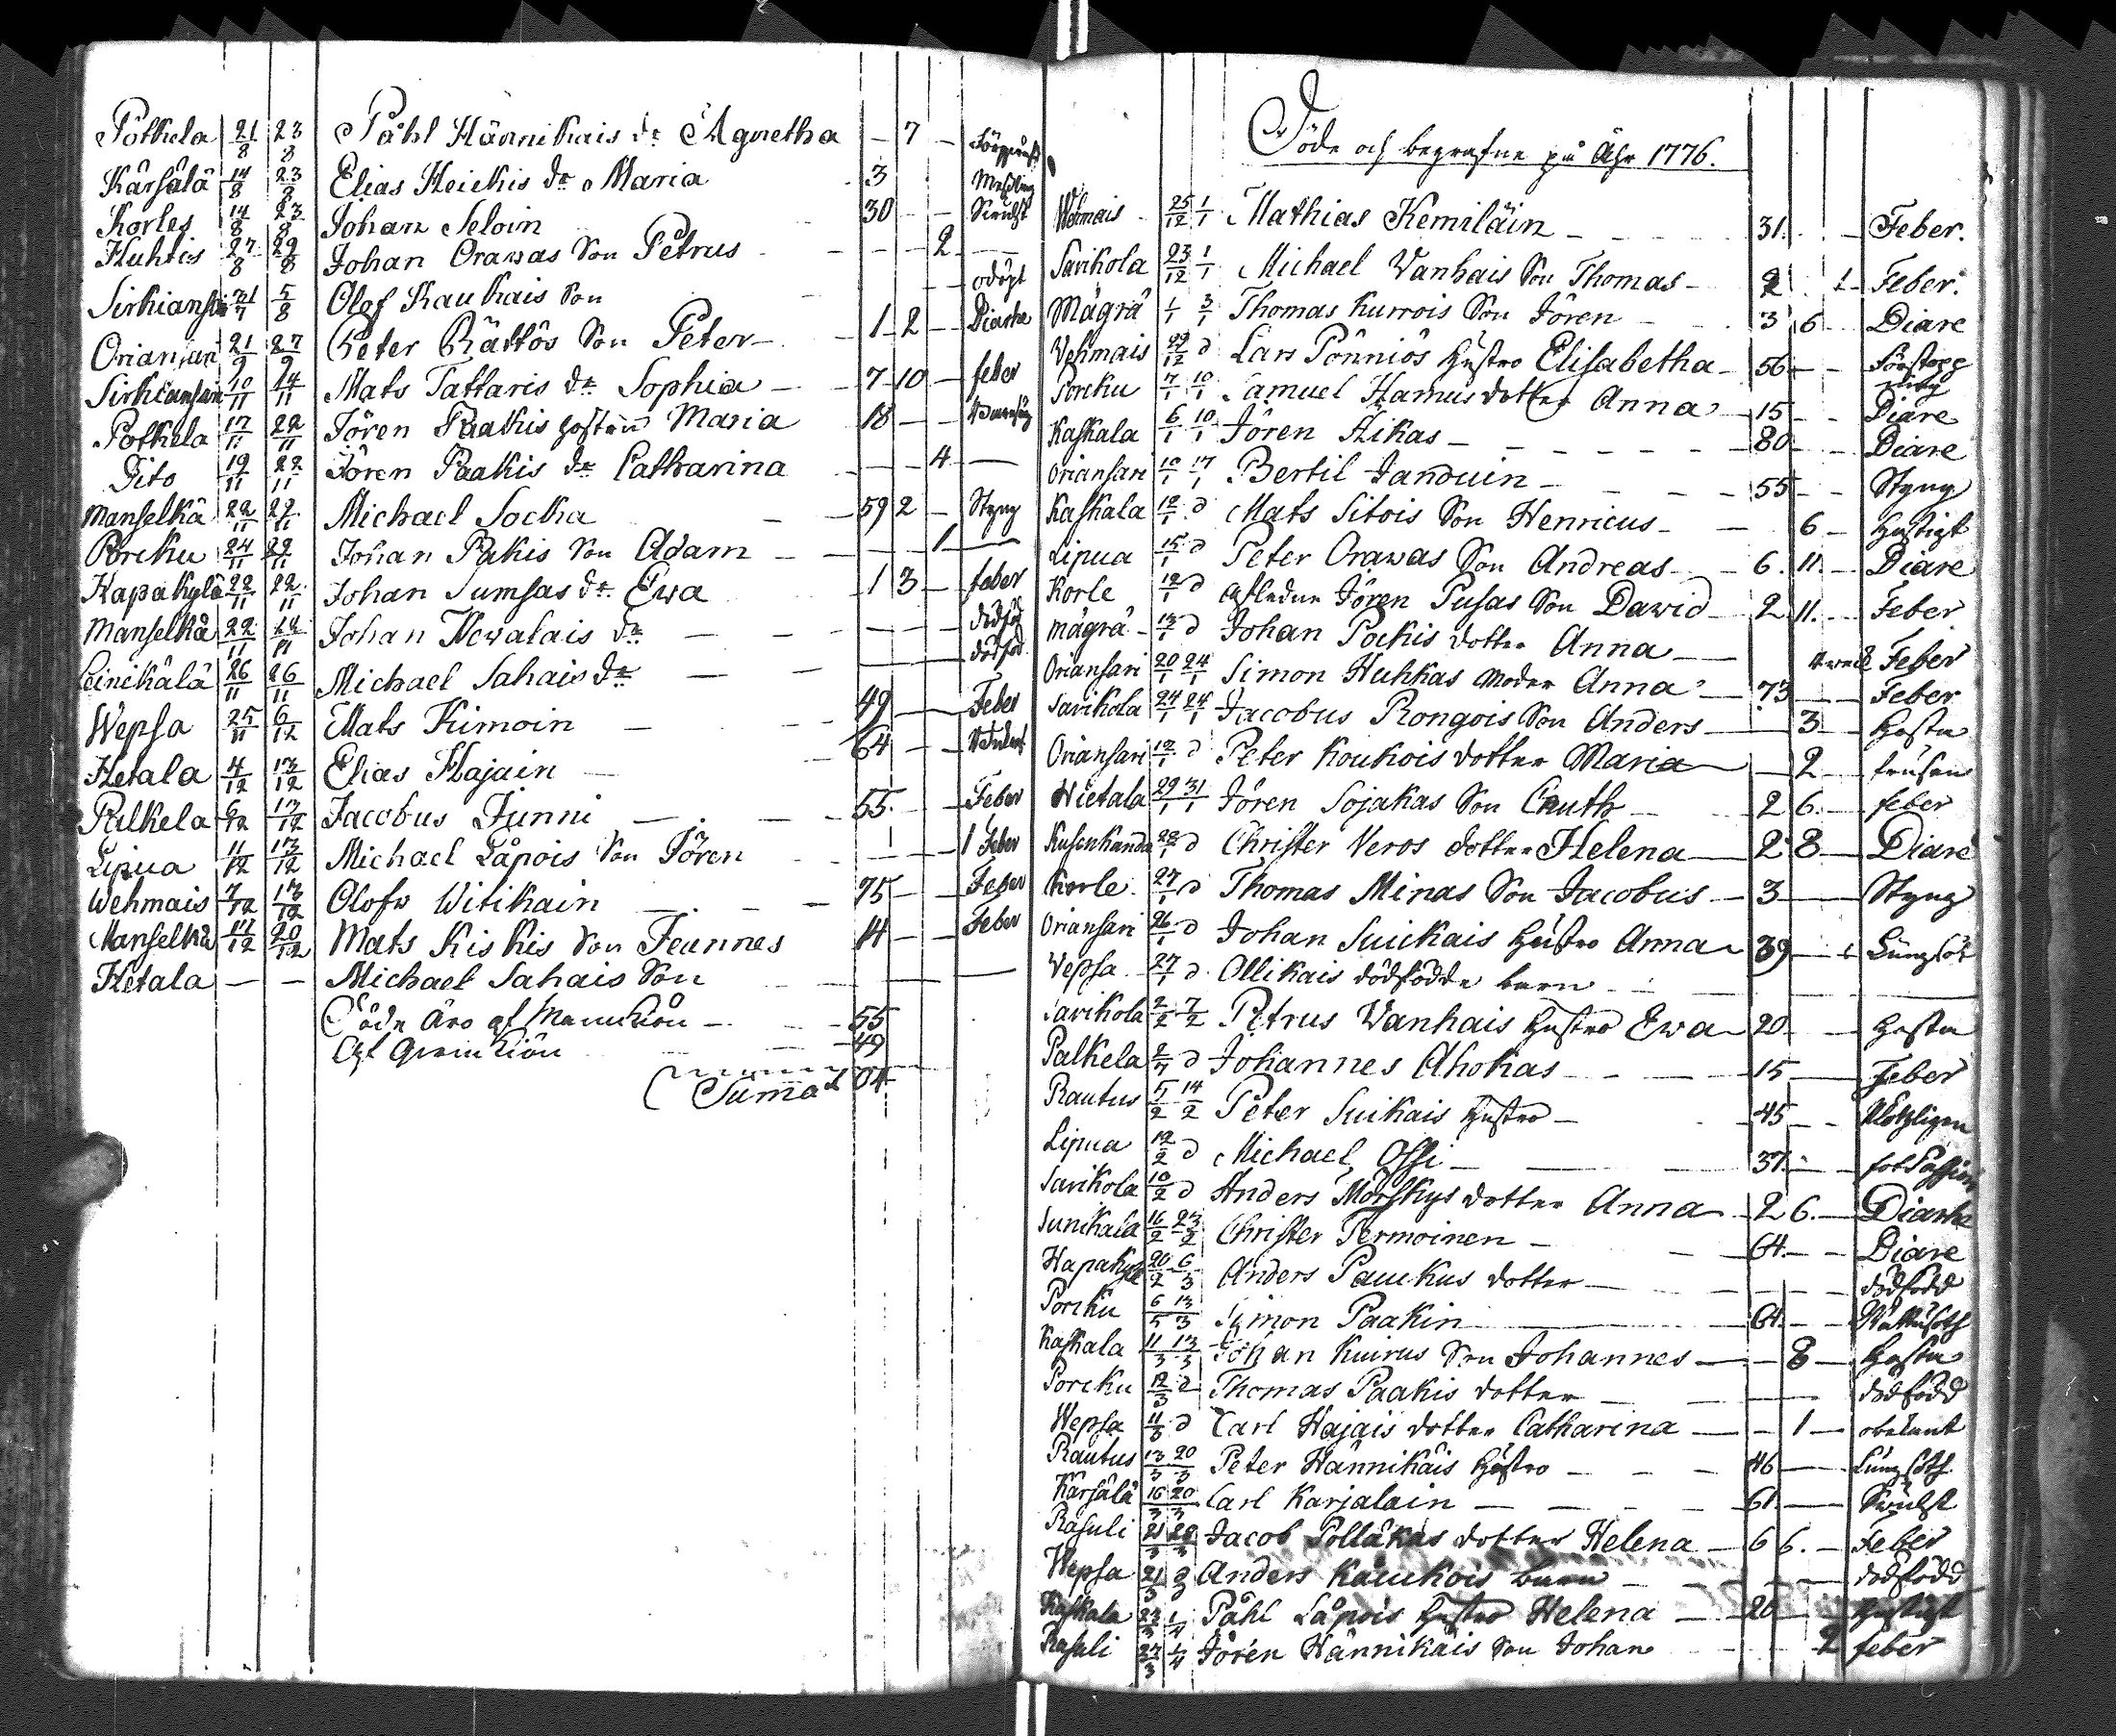 Potkela 21/8 23/8 Påhl Hännikais dr Agnetha – 7 –
Kärsälä 14/8 23/8 Elias Heickis dr Maria 3 Meßling
Korles 14/8 23/8 Johan Seloin 30 – – Swulst
Huhtis 27/8 29/8 Johan Orawas Son Petrus – – 2 –
Sirkiansari 31/7 5/8 Olof Kaukais Son odöpt
Oriansari 21/9 27/9 Peter Rättös Son Peter – 1 2 – Diarhe
Sirkiansari 10/11 14/11 Mats Tattaris dr Sophia – 7 10 – feber
Potkela 17/11 22/11 Jören Paakis hustru Maria 18 – –
Dito 19/11 22/11 Jören Paakis dr Catharina – – 4 –
Manselkä 22/11 22/11 Michael Socka – 59 2 – Styng
Porcku 24/11 29/11 Johan Pakis Son Adam – – – 1 –
Hapakylä 22/11 22/11 Johan Sumsas dr Ewa 1 3 – feber
Manselkä 22/11 22/11 Johan Hewalais dr – – – – dödföd
Leinikälä 26/11 26/11 Michael Sahais dr – – dödföd
Wepsa 25/11 6/12 Mats Kimoin – – 49 – Feber
Hetala 4/12 13/12 Elias Hajain – 64 – –
Palkela 6/12 13/12 Jacobus Junni – – 55 – – Feber
Lipua 11/12 13/12 Michael Låpois Son Jören – – 1 Feber
Wehmais 7/12 13/12 Olofw Witikain – – – 75 – – Feber
Manselkä 17/12 20/12 Mats Kiskis Son Feunnes 14 – – Feber
Hetala – – Michael Sahais Son –
Döde äro af Mankön – – 55
Af Qvinkön – 49
Suma 104
Döde och begrafne på Åhr 1776.
Wehmais 25/12 1/1 Mathias Kemiläin – – 31. – Feber.
Savikola 23/12 1/1 Michael Wanhais Son Thomas – 2 1 – Feber.
Mägrä 1/1 3/1 Thomas Kurrois Son Jören – 3 6 – Diare
Vehmais 29/12 d Lars Pönniös hustro Elisabetha – 56 – –
Porcku 7/1 10/1 Samuel Hamus dotter Anna – 15 – Diare
Kaskala 6/1 10/1 Jören Äikas – – 80 – Diare
Oriansari 10/1 17/1 Bertil Janduin – – 55 – – Styng
Kaskala 12/1 d Mats Sitois Son Henricus – – 6 – hastigt
Lipua 15/1 d Peter Orawas Son Andreas – 6. 11. – Diare
Korle 12/1 d afledne Jören Pusas Son Dawid – 2 11. – Feber
Mägrä – 13/1 d Johan Pockis dotter Anna – Feber
Oriansari 20/1 24/1 Simon Huhkas moder Anna – 73 – Feber
Savikola 24/1 24/1 Jacobus Rongois Son Anders – 3 – hosta
Oriansari 12/1 d Peter Koukois dotter Maria – 2 –
Hietala 29/1 31/1 Jören Sojakas Son Cnuth – 2 6. – feber
Kusenhanda 22/1 d Christer Veros dotter Helena – 2 8 – Diare
Korle 27/1 d Thomas Minas Son Jacobus – 3 – Styng
Oriansari 26/1 d Johan Suickais hustro Anna – 39 – Lungsot
Wepsa 27/1 d Ollikais dödfödde barn – –
Savikola 2/2 7/2 Petrus Wanhais hustro Ewa – 20 – hosta
Palkela 2/7 d Johannes Ahokas – – 15 – Feber
Rautus 5/2 14/2 Peter Suikais hustro – 45 – – Plötzligen
Lipua 12/2 d Michael Ossi – – 37. –
Savikola 10/2 d Anders Mörskys dotter Anna – 2 6. – Diarhe
Sunikala 16/2 23/2 Christer Termoinen – – 64. – Diare
Hapakylä 20/2 6/3 Anders Pauckus dotter – – – dödfödd
Porcku 6/5 13/3 Simon Paakin – – 64. –
Kaskala 11/3 13/3 Johan Kuirus Son Johannes – – 8 – hosta
Porcku 12/3 d Thomas Paakis dotter – – dödfödd
Wepsa 11/3 d Carl Hajais dotter Catharina – – 1 – obekant
Rautus 13/3 20/3 Peter Hännikäis hustro – – 46 – Lungsoth
Kärsälä 16/3 20/3 Carl Karjalain – – – 61 – Swulst
Räsuli 21/3 28/3 Jacob Pölläkäs dotter Helena – 6 6. – Feber
Wepsa 21/3 d Anders Kauckois barn – – – dödfödd
Kaskala 23/3 1/4 Påhl Låpois hustro Helena – 20 – hastigt
Rasuli 27/3 1/4 Jören Hännikäis Son Johan – 2 feber